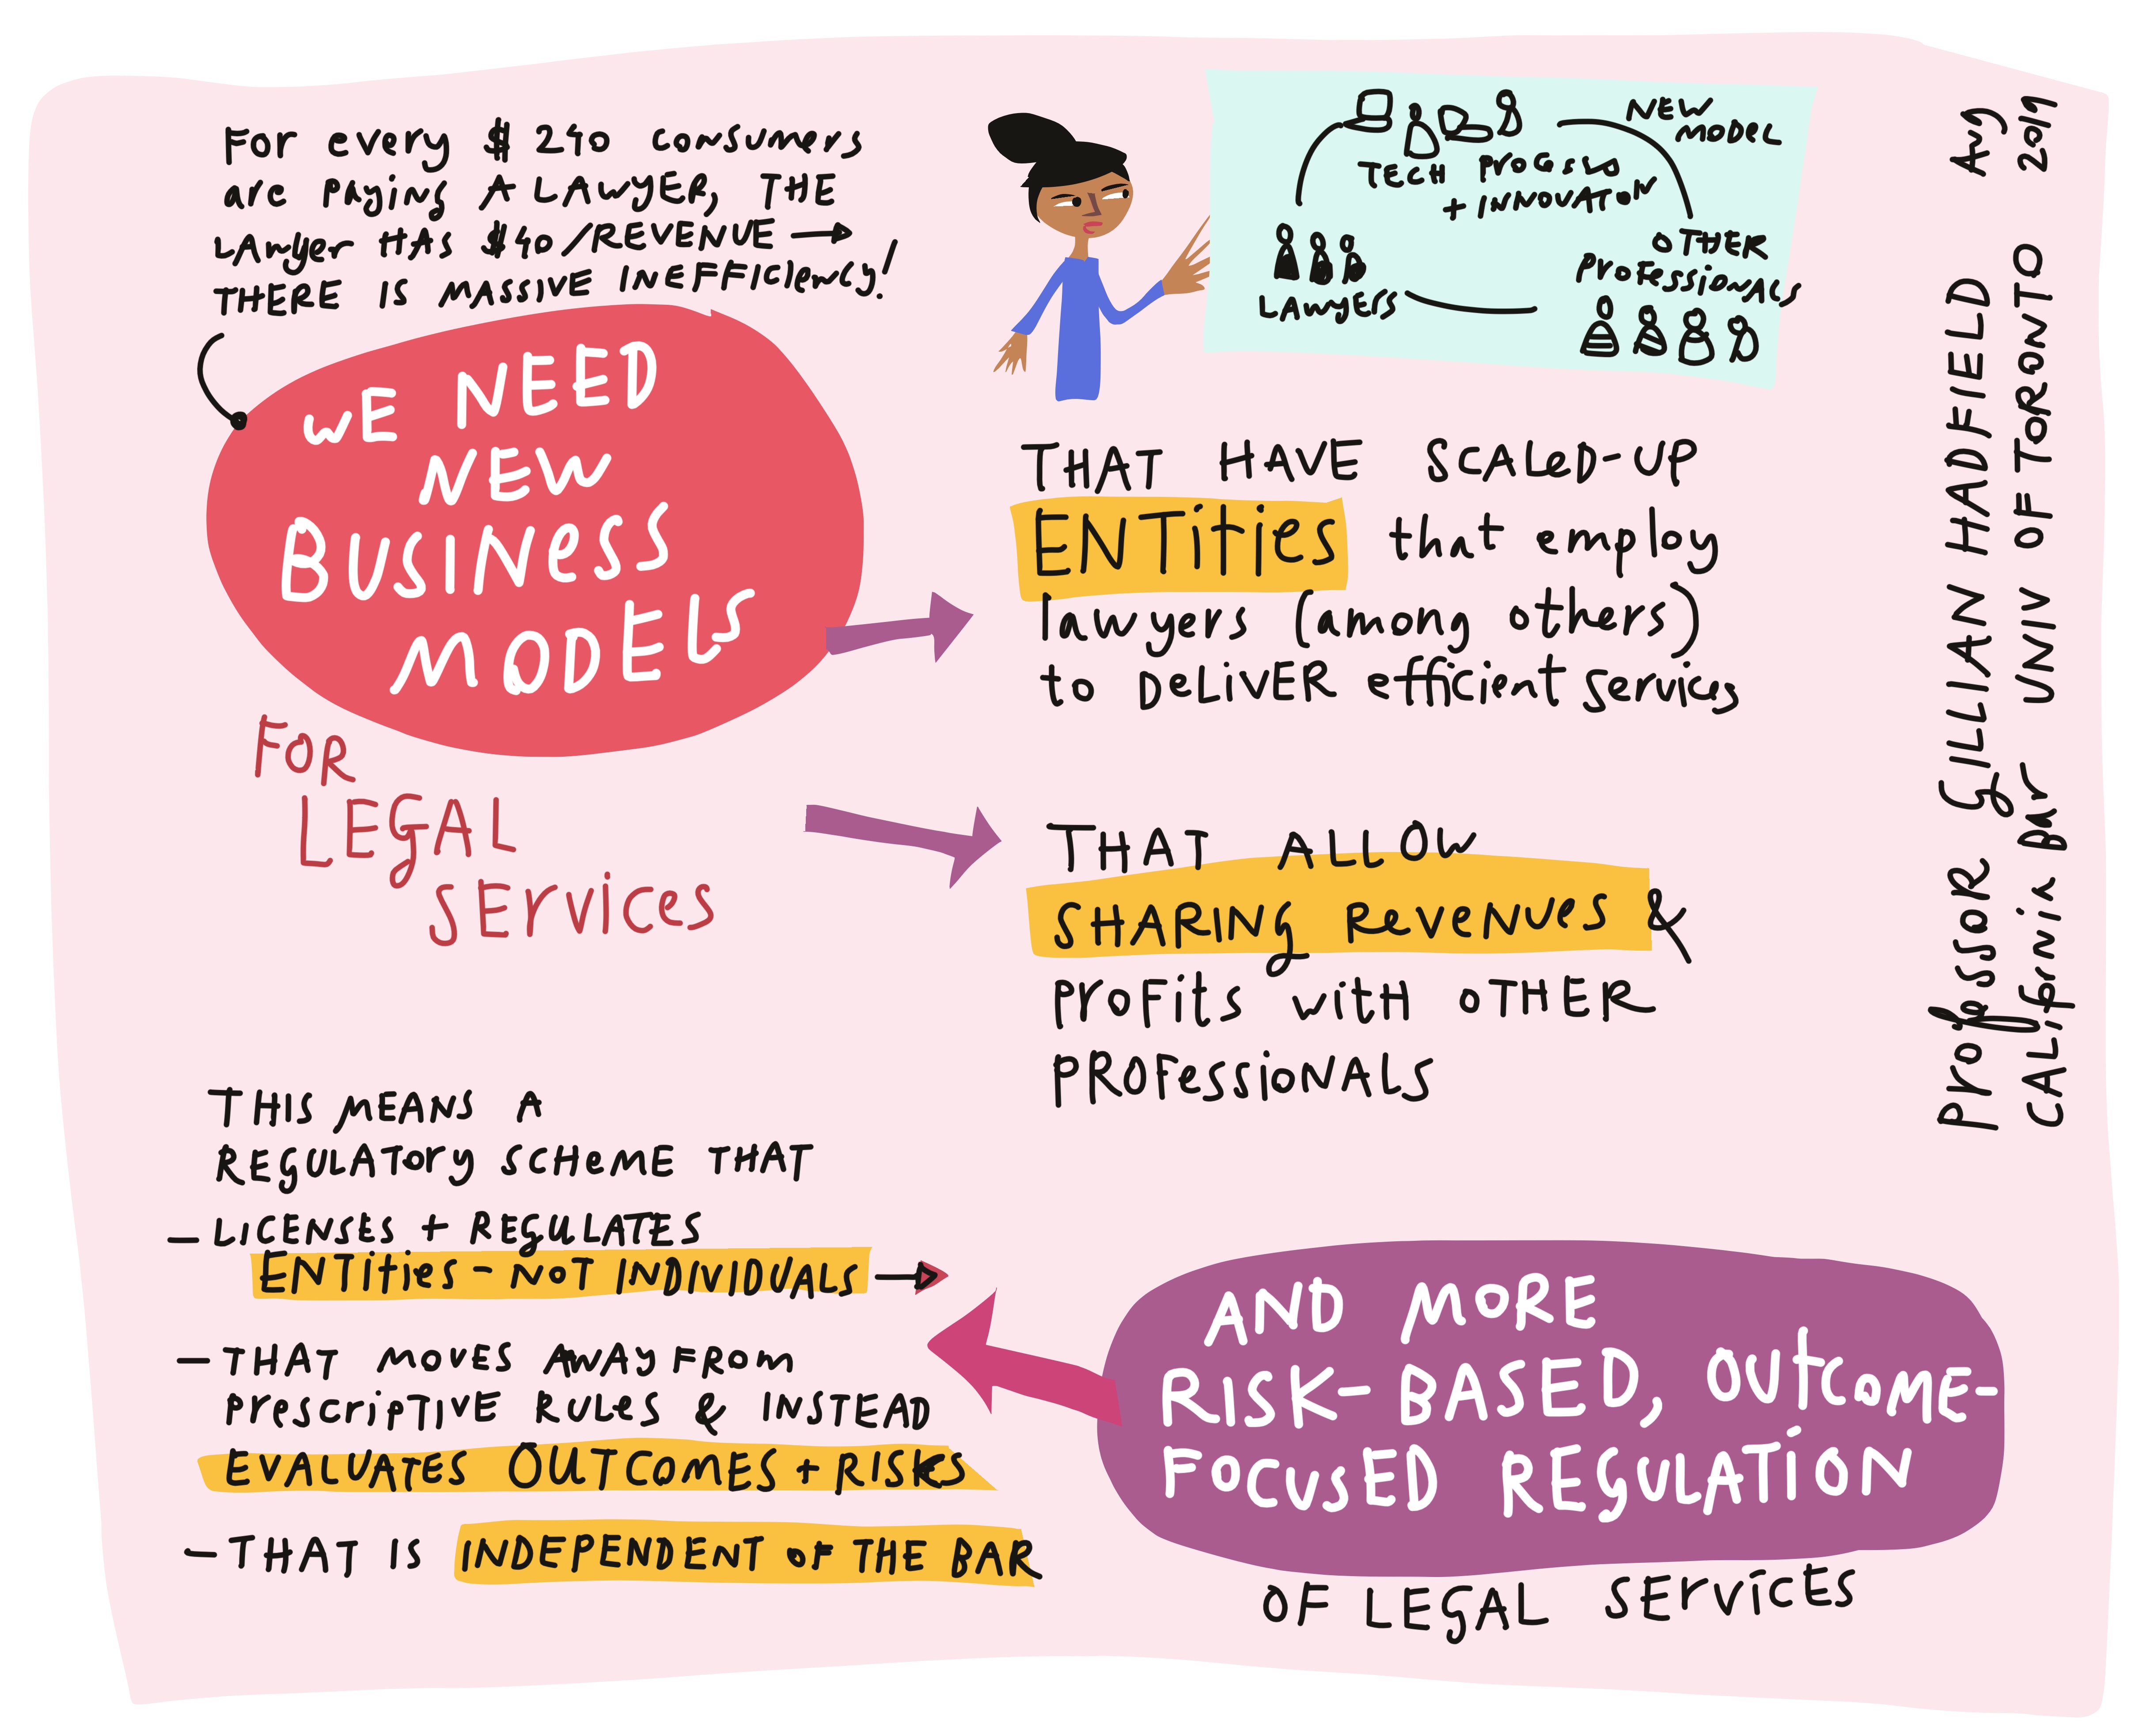 For every $240 consumers
are paying A LAWYER, THE
LAWyer HAS $40/REVENUE →
THERE IS MASSIVE INEFFICIENCY!
WE NEED
NEW
BUSINESS
MODELS
FOR
LEGAL
SERVICES
NEW
MODEL
TECH PROCESS
+ INNOVATION
LAWYERS
OTHER
PROFESSIONALS
THAT HAVE SCALED-UP
ENTities that employ
lawyers (among others)
to DELIVER efficient services
THAT ALLOW
SHARING REVENUES &
PROFITS with OTHER
PROFESSIONALS
THIS MEANS A
REGULATORY SCHEME THAT
- LICENSES + REGULATES
ENTities - NOT INDIVIDUALS →
- THAT MOVES AWAY FROM
PRESCRIPTIVE RULES & INSTEAD
EVALUATES OUTCOMES + RISKS
- THAT IS INDEPENDENT OF THE BAR
AND MORE
RISK-BASED, OUTCOME-
FOCUSED REGULATION
OF LEGAL SERVICES
Professor GILLIAN HADFIELD Aug
CALifornia BAr UNIV OF TORONTO 2019